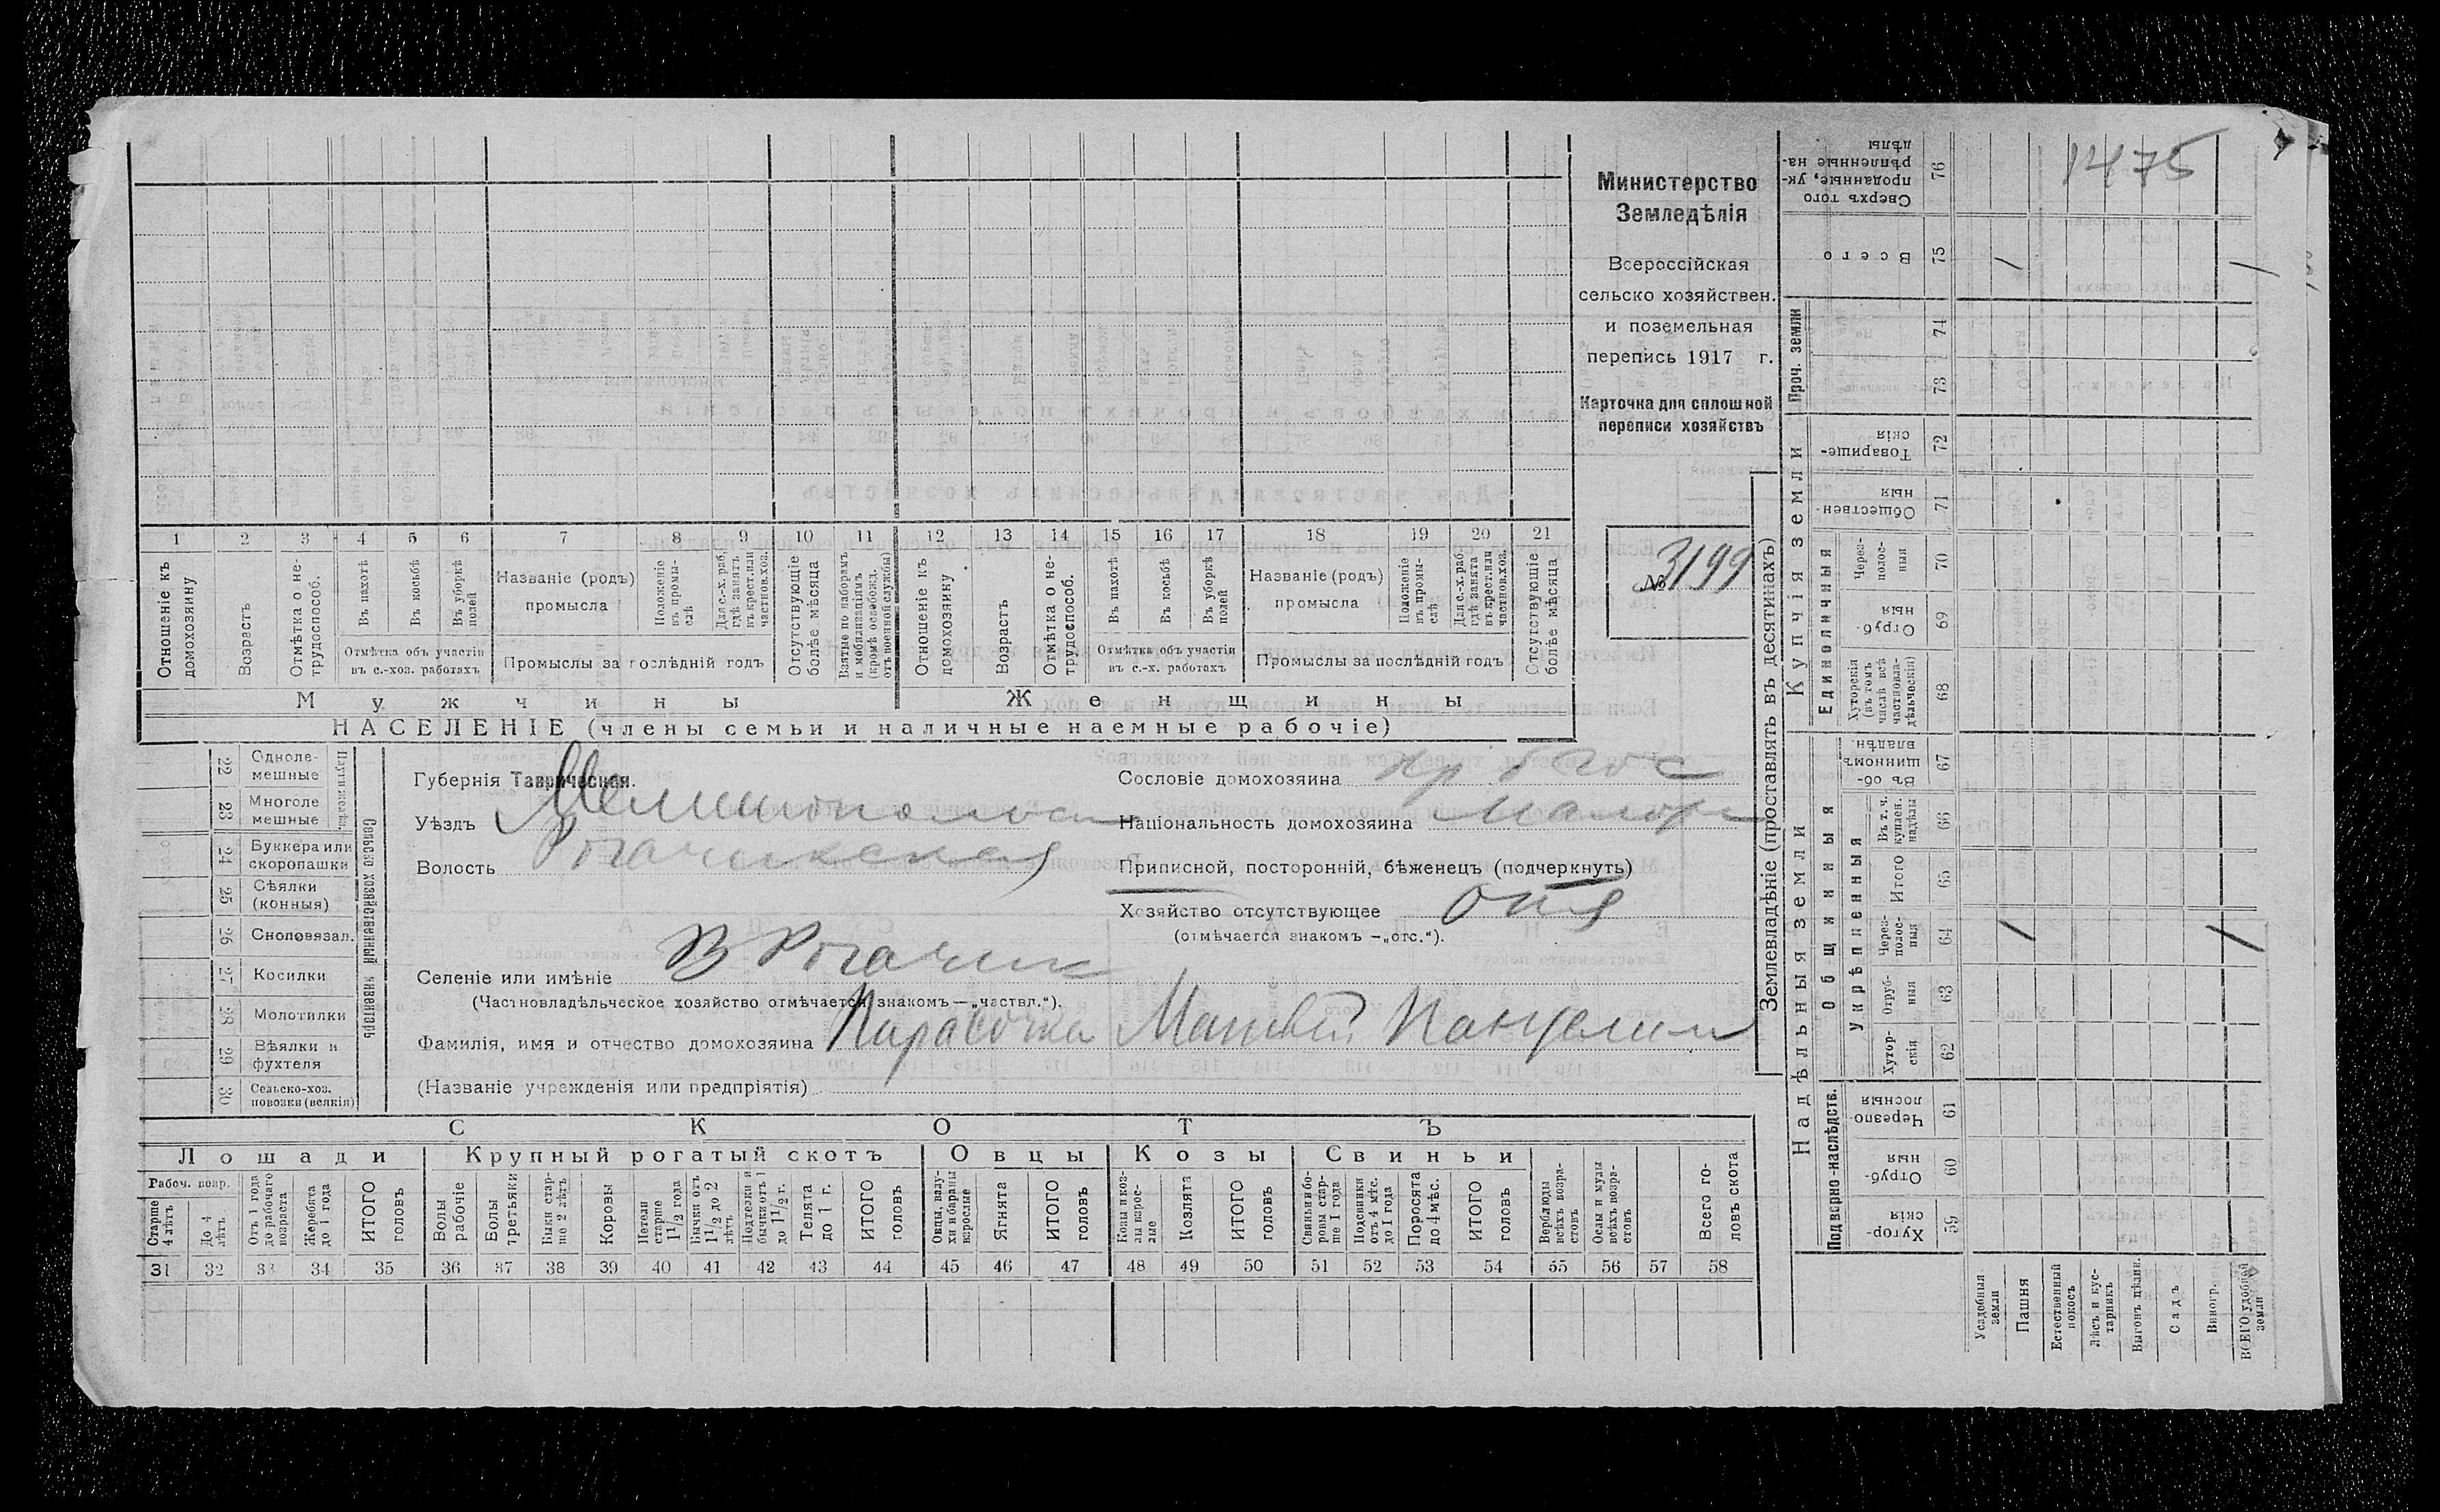 1475
Министерство
Земледѣлія
Всероссійская
сельско хозяйствен.
и поземельная
перепись 1917 г.
Карточка для сплошной
переписи хозяйствъ
№ 3199
1 2 3 4 5 6 7 8 9 10 11 12 13 14 15 16 17 18 19 20 21
Отношеніе къ домохозяину
Возрастъ
Отмѣтка о не-трудоспособ.
Въ пахотѣ
Въ косьбѣ
Въ уборкѣ полей
Отмѣтка объ участіи
въ с.-хоз. работахъ
Названіе (родъ)
промысла
Положеніе въ промы-слѣ
Для с.-х. раб. гдѣ занятъ въ крест. или частнов. хоз.
Промыслы за послѣдній годъ
Отсутствующіе болѣе мѣсяца
Взятые по наборамъ и мобилизаціямъ (кромѣ освобожд. отъ военной службы)
Отношеніе къ домохозяину
Возрастъ
Отмѣтка о не-трудоспособ.
Въ пахотѣ
Въ косьбѣ
Въ уборкѣ полей
Отмѣтка объ участіи
въ с.-х. работахъ
Названіе (родъ)
промысла
Положеніе въ промы-слѣ
Для с.-х. раб. гдѣ занята въ крест. или частнов. хоз.
Промыслы за послѣдній годъ
Отсутствующіе болѣе мѣсяца
Мужчины Женщины
НАСЕЛЕНІЕ (члены семьи и наличные наемные рабочіе)
Сельско хозяйственный инвентарь
22 Одноле-мешные
23 Многоле мешные
24 Буккера или скоропашки
25 Сѣялки (конныя)
26 Сноповязал.
27 Косилки
28 Молотилки
29 Вѣялки и фухтеля
30 Сельско-хоз. повозки (всякія)
Губернія Таврическая.
Уѣздъ
Волость Рогачикская
Селеніе или имѣніе В Рогачик
(Частновладѣльческое хозяйство отмѣчается знакомъ—„частвл.“).
Фамилія, имя и отчество домохозяина Матвей
(Названіе учрежденія или предпріятія)
Сословіе домохозяина
Національность домохозяина
Приписной, посторонній, бѣженецъ (подчеркнуть)
Хозяйство отсутствующее
(отмѣчается знакомъ —„отс.“).
СКОТЪ
Лошади Крупный рогатый скотъ Овцы Козы Свиньи
Рабоч. возр.
Старше 4 лѣтъ
До 4 лѣтъ
Отъ 1 года до рабочаго возраста
Жеребята до 1 года
ИТОГО головъ
Волы рабочіе
Волы третьяки
Быки стар-ше 2 лѣтъ
Коровы
Нетели старше 1 1/2 года
Бычки отъ 1 1/2 до 2 лѣтъ
Подтелки и бычки отъ 1 до 1 1/2 г.
Телята до 1 г.
ИТОГО головъ
Овцы, валу-хи и бараны взрослые
Ягнята
ИТОГО головъ
Козы и коз-лы взрос-лые
Козлята
ИТОГО головъ
Свиньи и бо-ровы стар-ше 1 года
Подсвинки отъ 4 мѣс. до 1 года
Поросята до 4 мѣс.
ИТОГО головъ
Верблюды всѣхъ возра-стовъ
Ослы и мулы всѣхъ возра-стовъ
Всего го-ловъ скота
31 32 33 34 35 36 37 38 39 40 41 42 43 44 45 46 47 48 49 50 51 52 53 54 55 56 57 58
Землевладѣніе (проставлять въ десятинахъ)
Надѣльныя земли
Купчія земли
Проч. земли
Подворно-наслѣдств.
Общинныя
Укрѣпленныя
Единоличныя
Сверхъ того проданные, ук-рѣпленные на-дѣлы 76
Всего 75
74
73
Товарище-скія 72
Обществен-ныя 71
Через-полос-ныя 70
Отруб-ныя 69
Хуторскія (въ томъ числѣ всѣ частновла-дѣльческія) 68
Въ об-щинномъ владѣн. 67
Въ т. ч. куплен. надѣлы 66
Итого 65
Через-полос-ныя 64
Отруб-ныя 63
Хутор-скія 62
Черезпо-лосныя 61
Отруб-ныя 60
Хутор-скія 59
Усадебныя земли
Пашня
Естественный покосъ
Лѣсъ и кус-тарникъ
Выгонъ цѣлин.
Садъ
Виногр.
ВСЕГО удобной земли